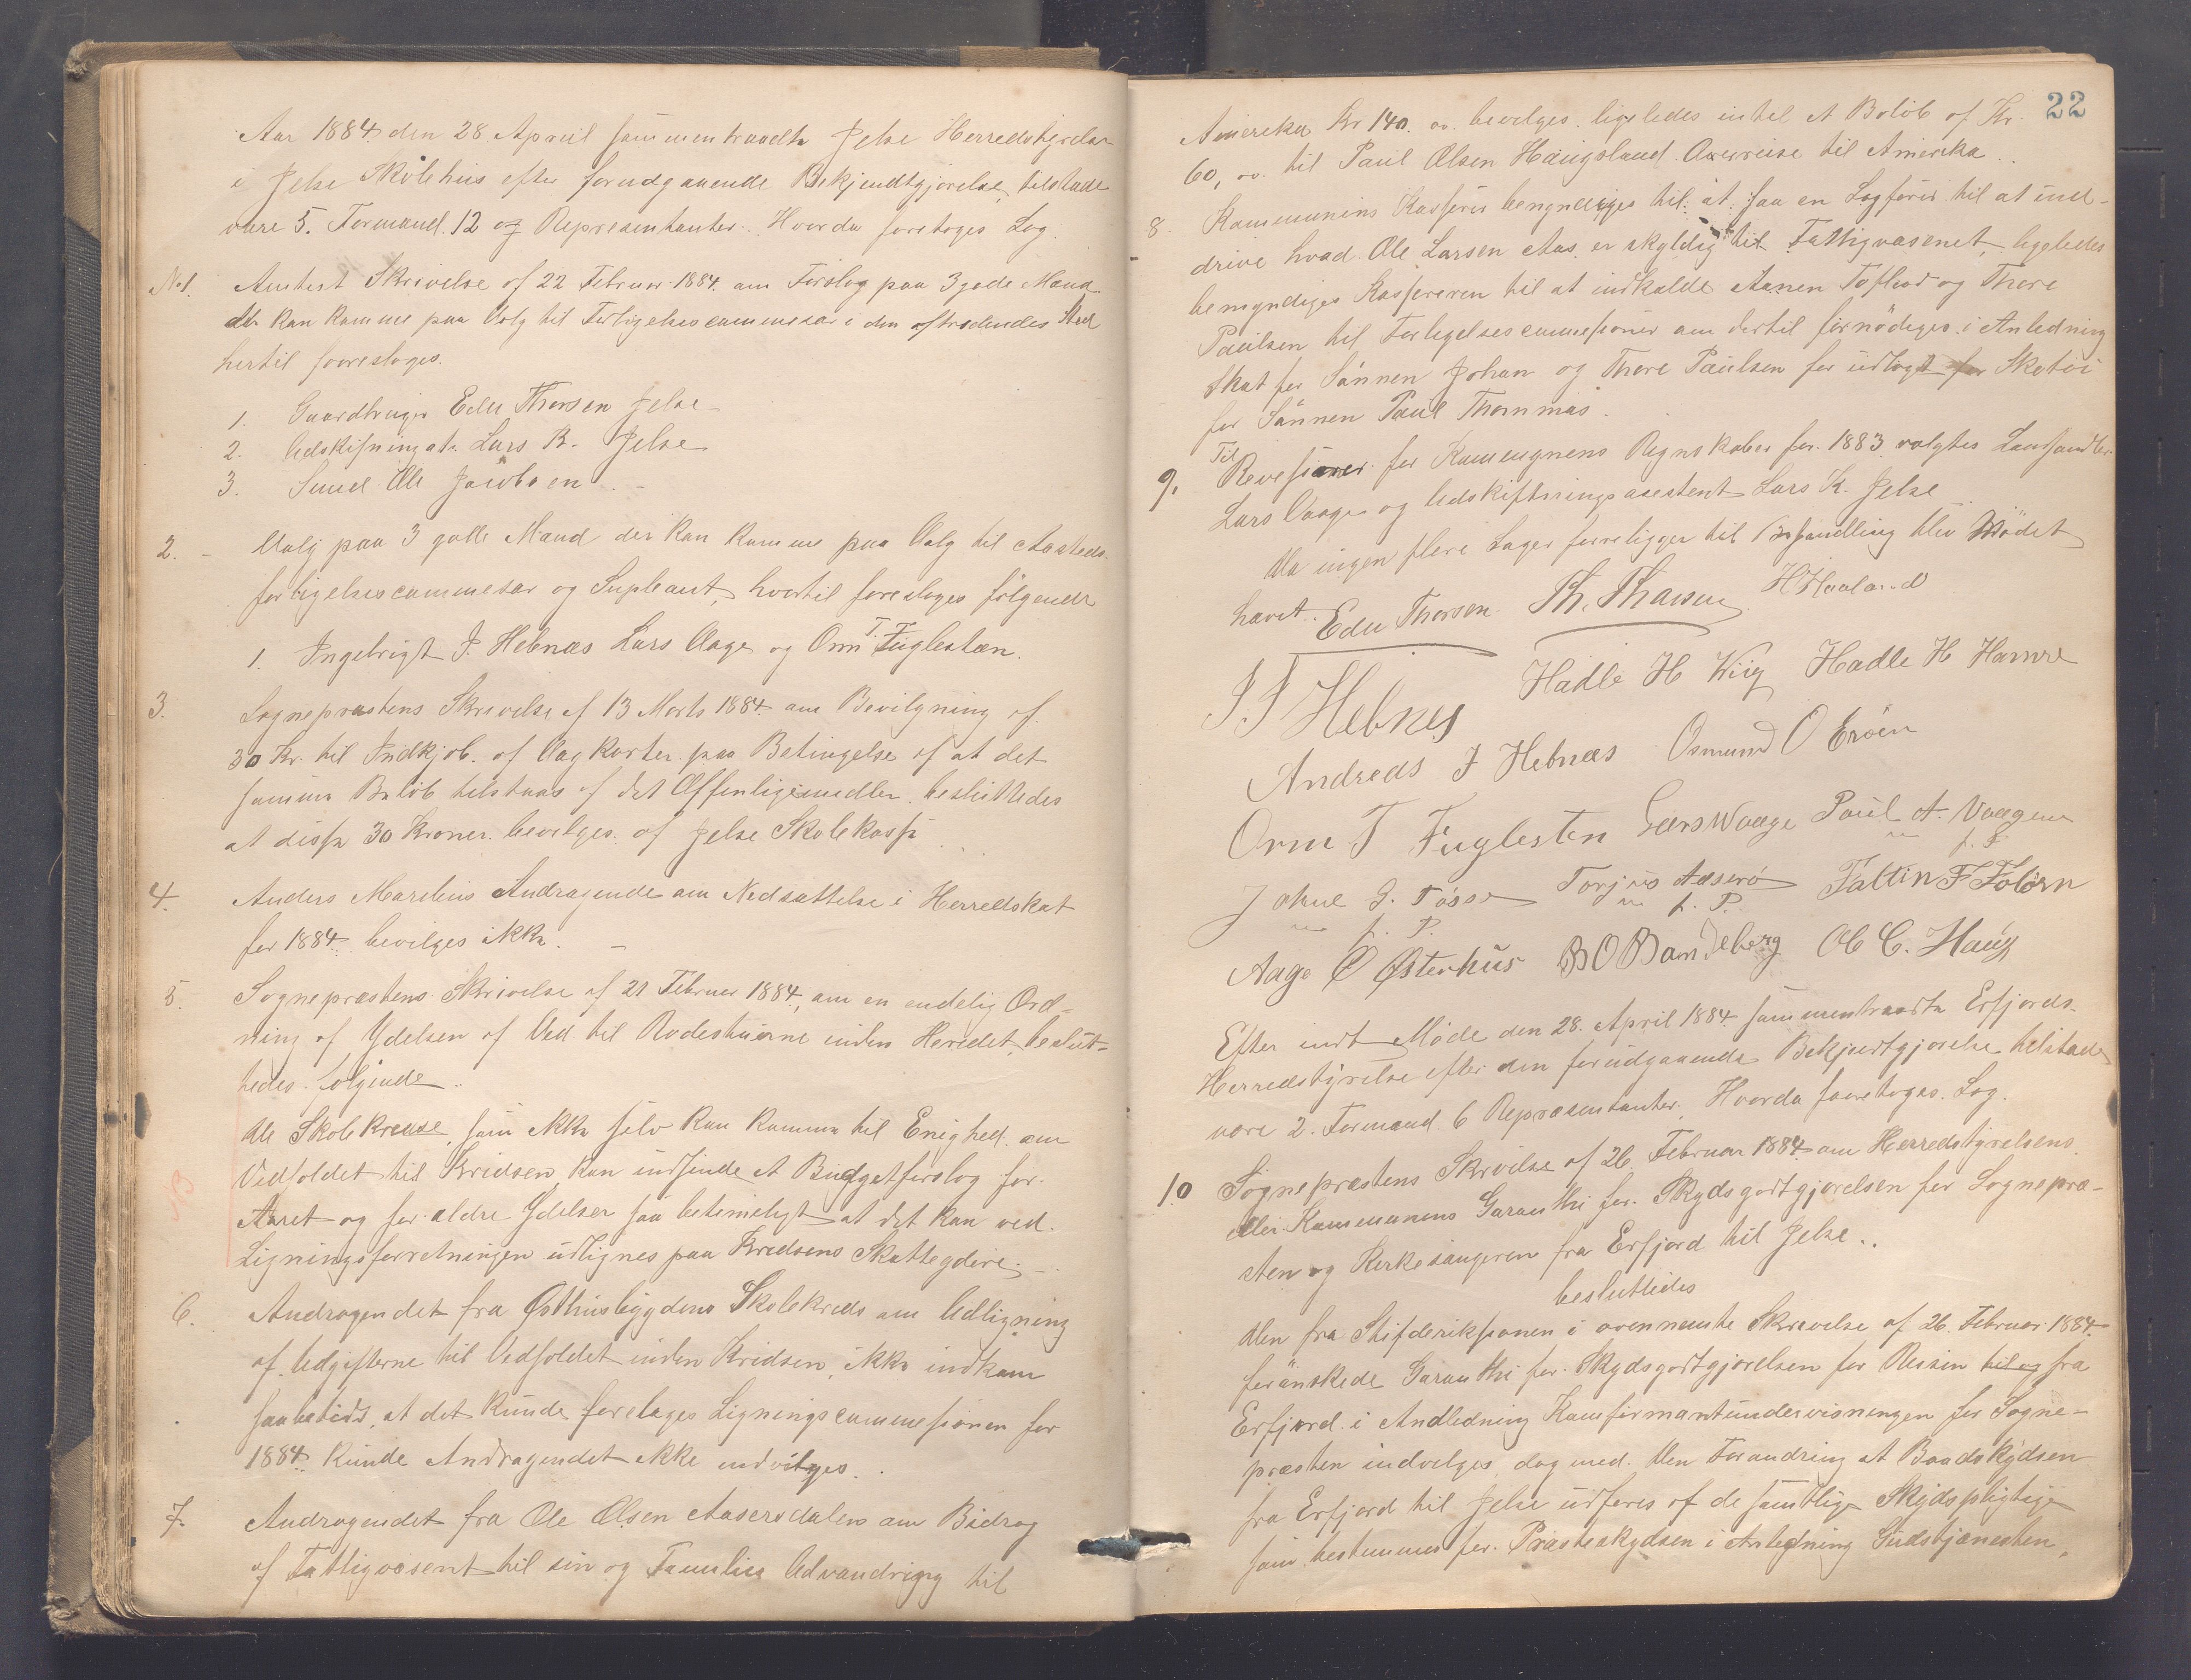 Aar 1884 den 28 April sammentraadte Jelse Herredstyrelse
i Jelse Skolehus efter forudgaaende Bekjendtgjørelse, tilstæde
vare 5. Formænd. 12 og Repræsentanter. Hvorda foretoges Sag
No 1. Amtest Skrivelse af 22 Februar 1884. om Forslag paa 3 gode Mænd
der kan komme paa Valg til Forligelsescommesær i den aftrædendes Sted
hertil fooresloges.
1. Gaardbruger Eder Thorsen Jelse
2. Udskifningsat. Lars K. Jelse
3. Smed Ole Jacobsen
2. Valg paa 3 gode Mænd der kan komme paa Valg til Aasteds-
forligelsescommesær og Supleant, hvortil foresloges følgende
1. Ingebrigt J. Hebnæs Lars Vaage og Orm T. Fuglestæn.
3. Sognepræstens Skrivelse af 13 Marts 1884. om Bevilgning af
30 Kr. til Indkjøb. af Vægkarter paa Betingelse af at det
samme Beløb tilstaaes af det Offenligemedler. besluttedes
at disse 30 Kroner. bevilges. af Jelse Skolekasse
4. Anders Marelius Andragende om Nedsættelse i Herredskat
for 1884. bevilges ikke.
5. Sognepræstens Skrivelse af 21 Februar 1884, om en endelig Ord-
ning af Ydelsen af Ved til Rodestuerne inden Heredet, beslut-
tedes følgende.
De Skolekredse, som ikke selv kan komme til Enighed om
Vedholdet til Kredsen, kan indsende et Budgetforslag for
Aaret og for ældre Ydelser saa betimeligt at det kan ved.
Ligningsforretningen udlignes paa Kredsens Skatteydere.
6. Andragendet fra Østhusbygdens Skolekreds om Udligning
af Udgifterne til Vedholdet inden Kredsen, ikke indkom
saabetids, at det kunde forelæges Ligningscommesionen for
1884. kunde Andragendet ikke indvilges.
7. Andragendet fra Ole Olsen Aasersdalen om Bidrag
af Fattigvæsent til sin og Familiens Udvandring til
22
Amerika Kr 140. oo. bevilges. ligeledes intil et Beløb af Kr.
60, oo. til Paul Olsen Haugsland Overreise til Amerika.
8. Kommunens Kasserer bemyndiges til. at. faa en Sagfører til at ind-
drive hvad Ole Larsen Aas. er skyldig til Fattigvæsenet, ligeledes
bemyndiges Kassereren til at indkalde Aanen Tofteod og Thore
Paulsen til Forligelsescommesionen om dertil fornødiges. i Anledning
Skat for Sønnen Johan og Thore Paulsen for udlagt for Skotøi
for Sønnen Paul Thommas.
9. Til Revesioner for Kommunens Regnskaber for. 1883. valgtes Lanhandler
Lars Vaage og Udskiftningsasestent Lars K. Jelse
Da ingen flere Sager foreligger til Behandling blev Mødet
hævet. Eder Thorsen Th. Thorsen H Haaland
J J Hebnes Hadle H Wiig Hadle H Hamre
Andreas J Hebnæs Osmund O Erøen
Orm T Fuglesten Lars Waage Paul A. Vaagen
m. p. P.
Johne G. Tøsse Torjus Aaserø Fattin F Foløen
m. p. P. m. p. P.
Aage O Østerhus B O Bandeberg Ole C. Haug
Efter endt Møde den 28. April 1884 sammentraadte Erfjords-
Herredstyrelse efter den forudgaaende Bekjendtgjørelse tilstæde
vare 2. Formænd 6 Repræsentanter, Hvorda foretoges. Sag.
10 Sognepræstens Skrivelse af 26 Februar 1884 om Herredstyrelsens
eller Kommunens Garanthi for. Skydsgodtgjørelsen for Sognepræ-
sten og Kirkesangeren fra Erfjord til Jelse..
besluttedes
Den fra Stifderiksionen i ovennæmte Skrivelse af 26. Februar 1884.
forønskede Garanthi for. Skydsgodtgjørelsen for Reisen til og fra
Erfjord. i Andledning Komfirmantundervisningen for Sogne-
præsten indvelges, dog med. den Forandring at Baadskydsen
fra Erfjord til Jelse udføres af de samtlige Skydspligtige
som bestemmes for. Præsteskydsen i Anledning Gudstjænesten,